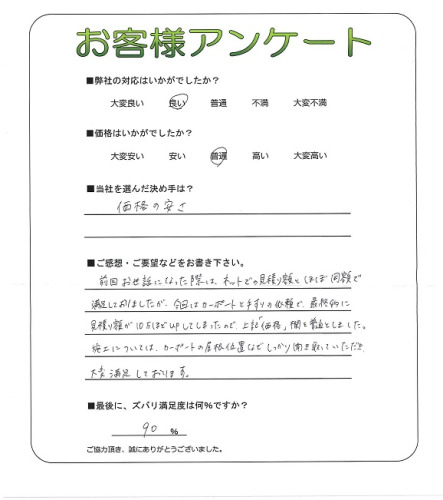 お客様アンケート
■弊社の対応はいかがでしたか？
大変良い 良い 普通 不満 大変不満
■価格はいかがでしたか？
大変安い 安い 普通 高い 大変高い
■当社を選んだ決め手は？
価格の安さ
■ご感想・ご要望などをお書き下さい。
前回お世話になった際は、ネットでの見積り額とほぼ同額で
満足しておりましたが、今回はカーポートと手すりの依頼で、最終的に
見積り額が10万ほどUPしてしまったので、上記「価格」欄を普通としました。
施工については、カーポートの屋根位置などしっかり聞き取っていただき
大変満足しております。
■最後に、ズバリ満足度は何％ですか？
90 %
ご協力頂き、誠にありがとうございました。